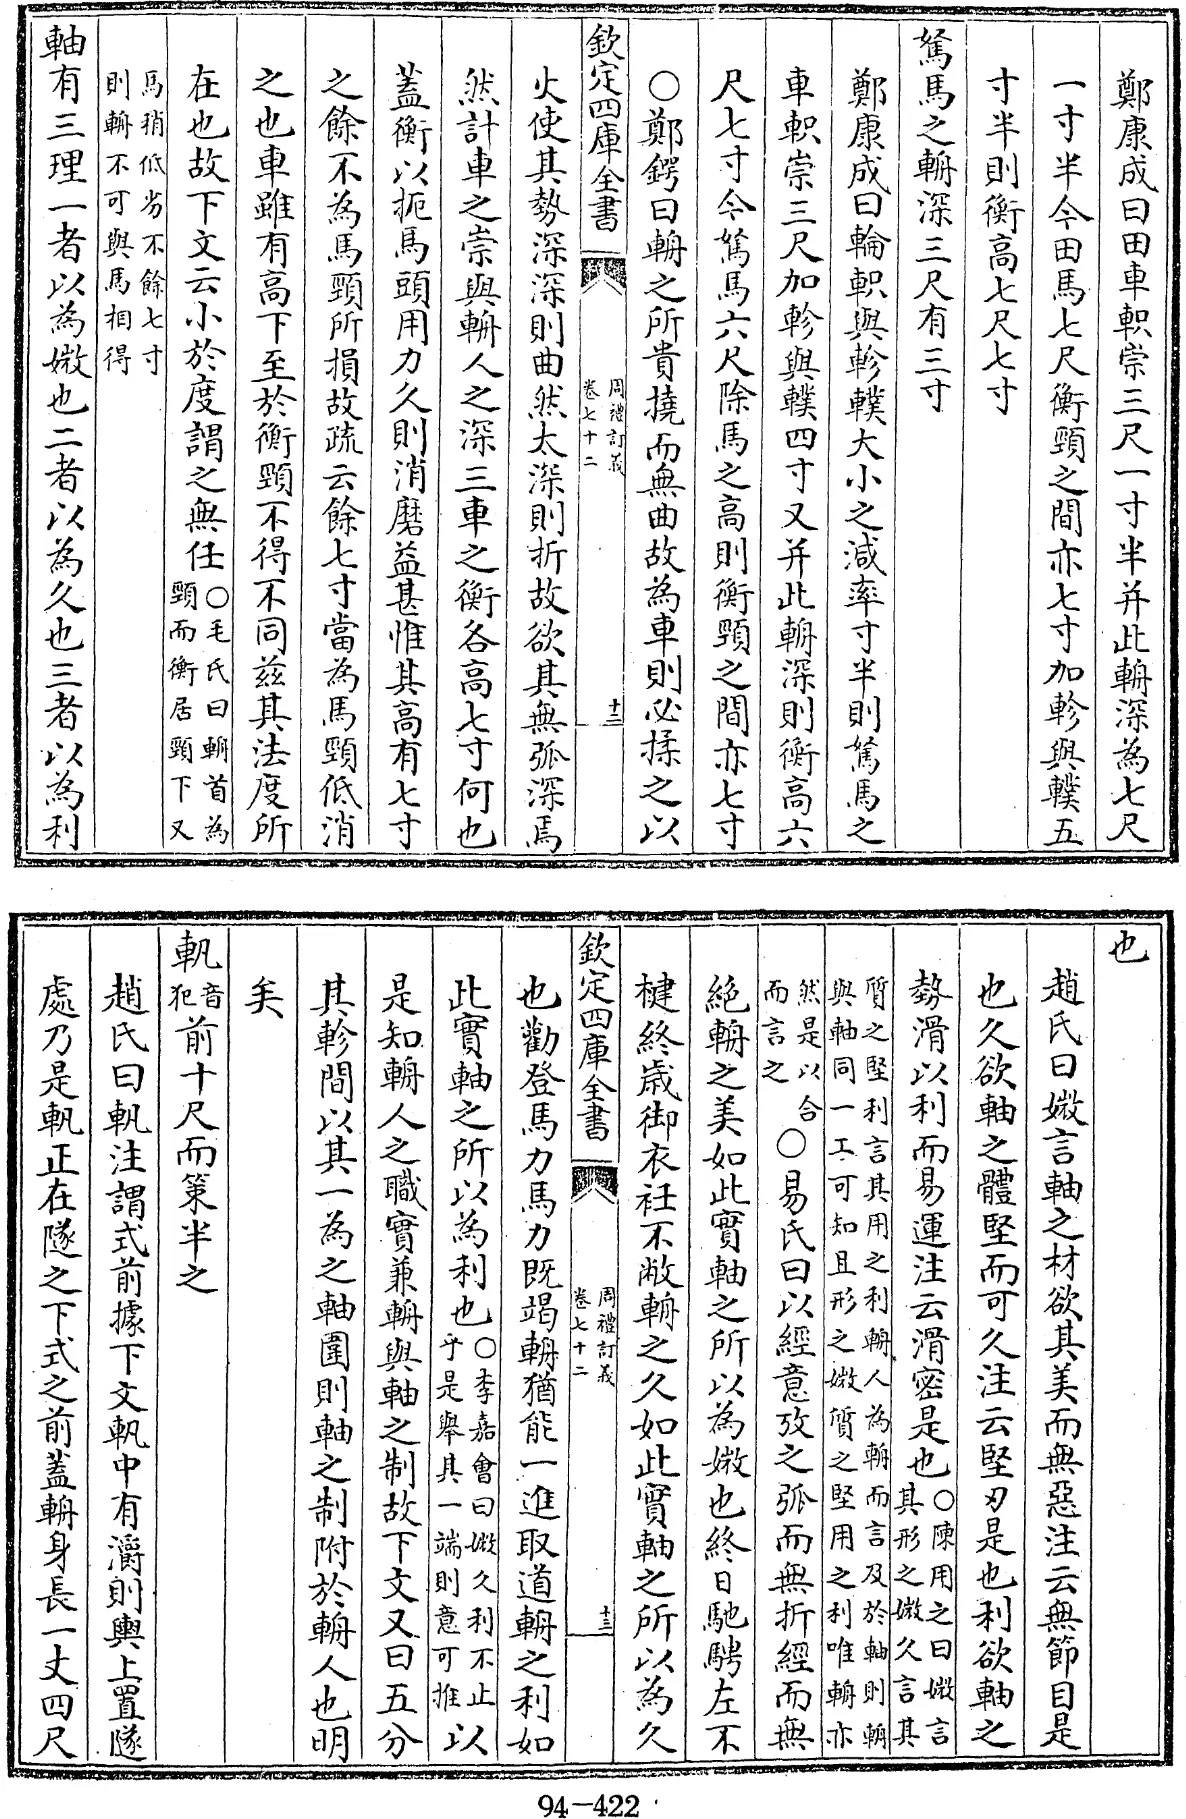 鄭康成曰田車軹崇三尺一寸半并此輈深為七尺
一寸半今田馬七尺衡頸之間亦七寸加軫與轐五
寸半則衡高七尺七寸
駑馬之輈深三尺有三寸
鄭康成曰輪軹與軫轐大小之減率寸半則駑馬之
車軹崇三尺加軫與轐四寸又并此輈深則衡高六
尺七寸今駑馬六尺除馬之高則衡頸之間亦七寸
○鄭鍔曰輈之所貴撓而無曲故為車則必揉之以
欽定四庫全書
周禮訂義
卷七十二
十二
火使其勢深深則曲然太深則折故欲其無弧深焉
然計車之崇與輈人之深三車之衡各高七寸何也
蓋衡以扼馬頭用力久則消磨益甚惟其高有七寸
之餘不為馬頸所損故疏云餘七寸當為馬頸低消
之也車雖有高下至於衡頸不得不同兹其法度所
在也故下文云小於度謂之無任
○毛氏曰輈首為
頸而衡居頸下又
馬稍低劣不餘七寸
則輈不可與馬相得
軸有三理一者以為媺也二者以為久也三者以為利
也
趙氏曰媺言軸之材欲其美而無惡注云無節目是
也久欲軸之體堅而可久注云堅刃是也利欲軸之
勢滑以利而易運注云滑密是也
○陳用之曰媺言
其形之媺久言其
質之堅利言其用之利輈人為輈而言及於軸則輈
與軸同一工可知且形之媺質之堅用之利唯輈亦
然是以合
而言之
○易氏曰以經意攷之弧而無折經而無
絶輈之美如此實軸之所以為媺也終日馳騁左不
楗終歲御衣衽不敝輈之久如此實軸之所以為久
欽定四庫全書
周禮訂義
卷七十二
十三
也勸登馬力馬力既竭輈猶能一進取道輈之利如
此實軸之所以為利也
○李嘉會曰媺久利不止
乎是舉其一端則意可推
以
是知輈人之職實兼輈與軸之制故下文又曰五分
其軫間以其一為之軸圍則軸之制附於輈人也明
矣
軓
音
犯
前十尺而策半之
趙氏曰軓注謂式前據下文軓中有灂則輿上置隧
處乃是軓正在隧之下式之前蓋輈身長一丈四尺
94-422